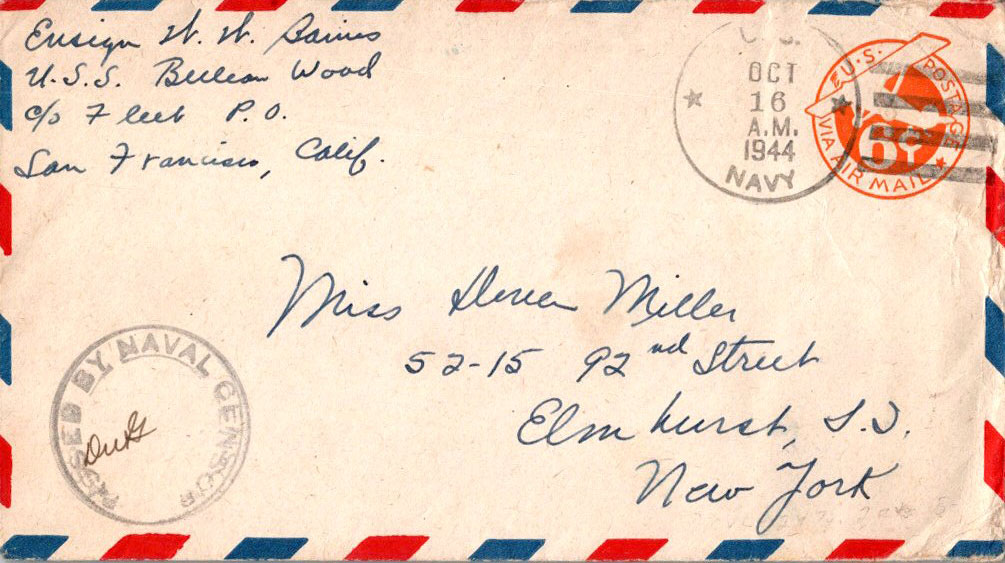 Ensign W. W. Sainis
U.S.S. Belleau Wood
c/o Fleet P.O.
San Francisco, Calif.
U.S.
OCT
16
A.M.
1944
NAVY
U.S. POSTAGE
6¢
VIA AIR MAIL
Miss Miller
52-15 92nd Street
Elmhurst, L.I.
New York
PASSED BY NAVAL CENSOR